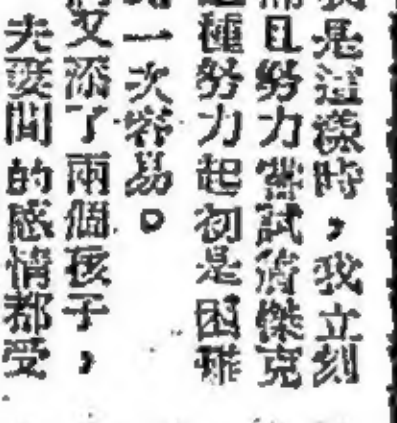 是這樣時，我立刻
且努力嘗試着傑克
種努力起初是困難
一次容易。
又添了兩個孩子，
夫妻間的感情都受